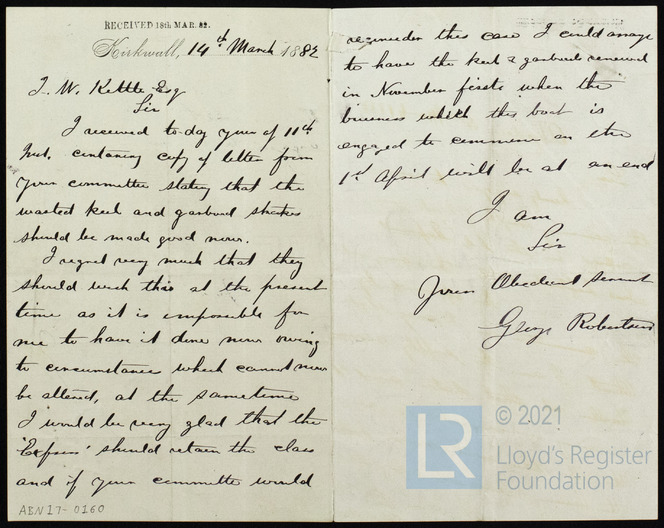 RECEIVED 18th MAR. 82.
Kirkwall, 14th March 1882
T. W. Kettle Esq
Sir
I received to-day yours of 11th
Inst. contaning copy of letter from
your committee stating that the
wasted keel and garbord strakes
should be made good now.
I regret very much that they
should wish this at the present
time as it is impossible for
me to have it done now owing
to circumstance which cannot now
be altered, at the sametime
I would be very glad that the
'Express' should retain the class
and if your committee would
ABN17-0160
reconsider this case I could arrange
to have the keel & garbords renewed
in November firsts when the
business which this boat is
engaged to commence on the
1st April will be at an end
I am
Sir
Your Obedient servant
George Robertson
LR
© 2021
Lloyd's Register
Foundation